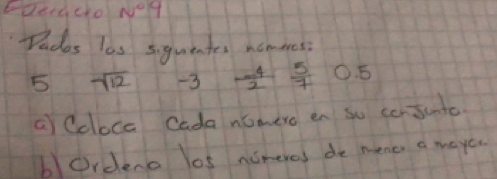 Ejercicio Nº9
Dados los siguientes números:
5 √12 -3 -4/2 5/7 0.5
a) Coloca cada número en su conjunto.
b) Ordena los números de menor a mayor